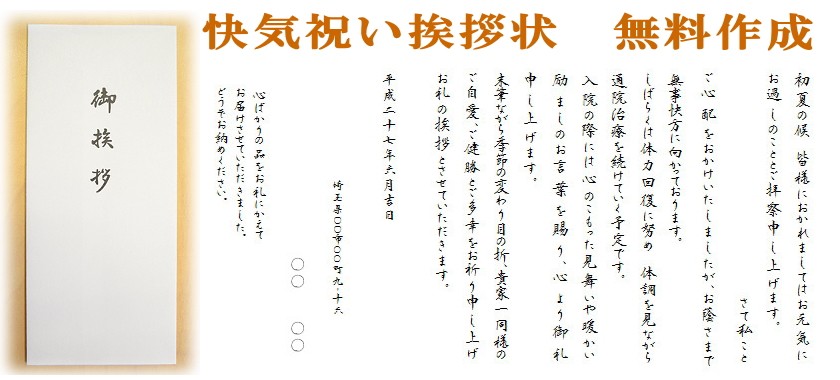 快気祝い挨拶状　無料作成
御挨拶
初夏の候　皆様におかれましてはお元気に
お過しのこととご拝察申し上げます。
さて私こと
ご心配をおかけいたしましたが、お蔭さまで
無事快方に向かっております。
しばらくは体力回復に努め　体調を見ながら
通院治療を続けていく予定です。
入院の際には心のこもった見舞いや暖かい
励ましのお言葉を賜り、心より御礼
申し上げます。
末筆ながら季節の変わり目の折、貴家一同様の
ご自愛、ご健勝とご多幸をお祈り申し上げ
お礼の挨拶とさせていただきます。
平成二十七年六月吉日
埼玉県〇〇市〇〇町九‐十六
〇〇　〇〇
心ばかりの品をお礼にかえて
お届けさせていただきました。
どうぞお納めください。